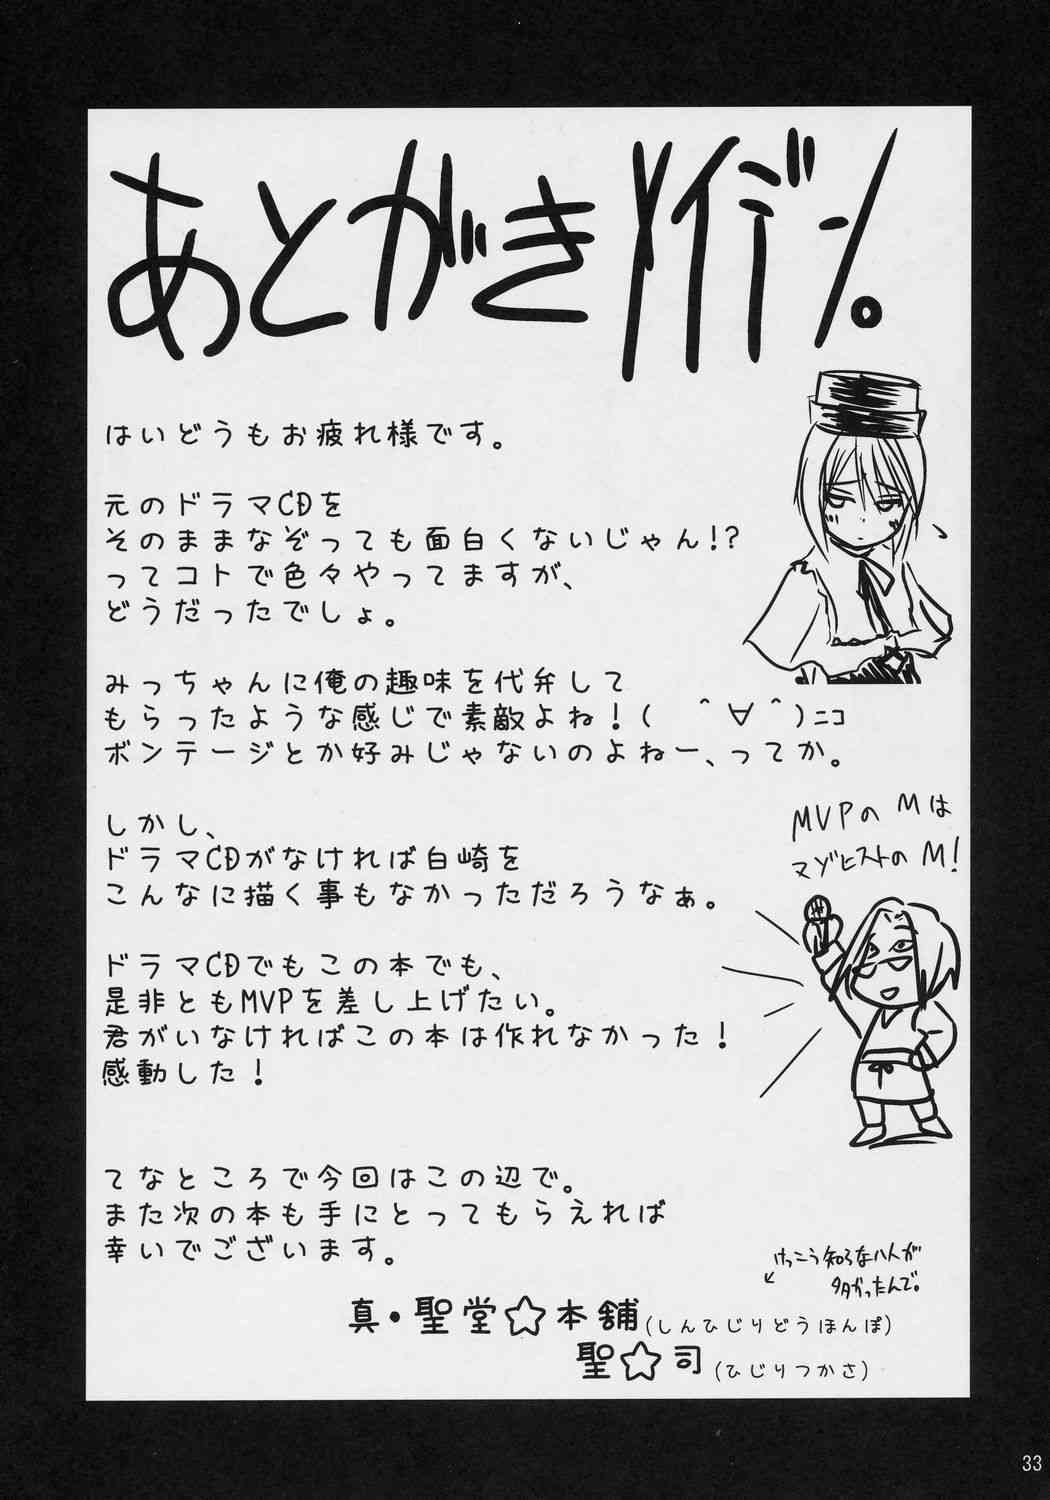 あとがきメイデン。
はいどうもお疲れ様です。
元のドラマCDを
そのままなぞっても面白くないじゃん!?
ってコトで色々やってますが、
どうだったでしょ。
みっちゃんに俺の趣味を代弁して
もらったような感じで素敵よね！(　＾∀＾)ﾆｺ
ボンテージとか好みじゃないのよねー、ってか。
しかし、
ドラマCDがなければ白崎を
こんなに描く事もなかっただろうなぁ。
MVPのMは
マゾヒストのM!
ドラマCDでもこの本でも、
是非ともMVPを差し上げたい。
君がいなければこの本は作れなかった！
感動した！
てなところで今回はこの辺で。
また次の本も手にとってもらえれば
幸いでございます。
けっこう知らない人が
多かったんで。
真・聖堂☆本舗(しんひじりどうほんぽ)
聖☆司(ひじりつかさ)
33